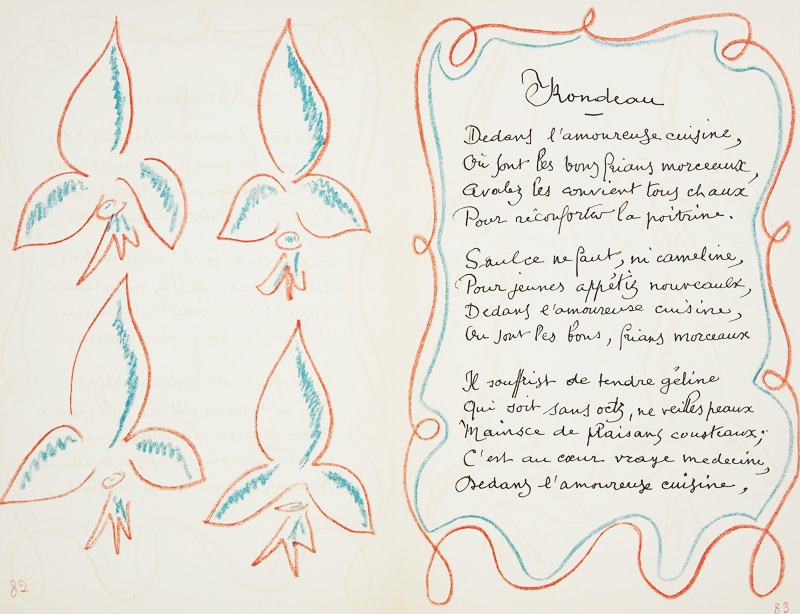 82
Rondeau
Dedans l'amoureuse cuisine,
Où sont les bons frians morceaux,
Avalez les convient tous chaux
Pour réconforter la poitrine.
Saulce ne faut, ni cameline,
Pour jeunes appétiz nouveaulx,
Dedans l'amoureuse cuisine,
Ou sont les bons, frians morceaux
Il souffist de tendre géline
Qui soit sans octz, ne veilles peaux
Mainsce de plaisans cousteaux;
C'est au cœur vraye medecine,
Dedans l'amoureuse cuisine,
83